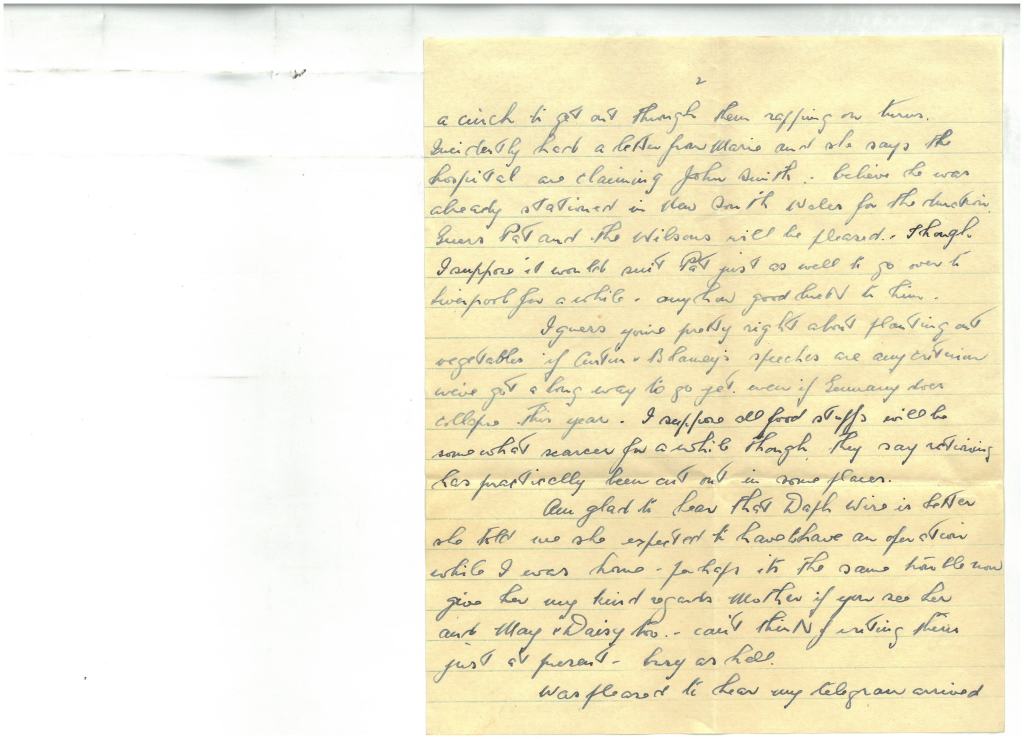 2
a cinch to get out through them rapping on turns.
Incidently had a letter from Marie and she says the
hospital are claiming John Smith. believe he was
already stationed in New South Wales for the duration
Guess Pat and the Wilsons will be pleased. Though
I suppose it would suit Pat just as well to go over to
Liverpool for a while - anyhow good luck to him.
I guess you're pretty right about planting out
vegetables if Curtin & Blamey's speeches are any criterion
we've got a long way to go yet. even if Germany does
collapse this year. I suppose all food stuffs will be
somewhat scarcer for a while though, they say rationing
has practically been cut out in some places.
Am glad to hear that Daph Wire is better
she told me she expected to have have an operation
while I was home - perhaps its the same trouble now
give her my kind regards Mother if you see her
and May & Daisy too. - can't think of writing them
just at present - busy as hell.
Was pleased to hear my telegram arrived